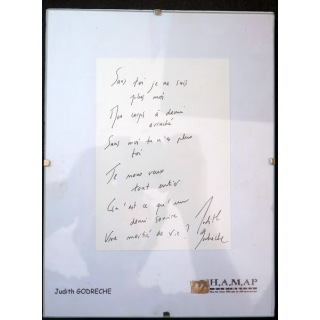 Sans toi je ne suis
plus moi
Mon corps à demi
Sans moi tu n'es plus
toi
Je nous veux
tout entier
Qu'est ce qu'une
demi
Une moitié de vie ?
Judith
Godreche
H.A.M.A.P
Judith GODRECHE